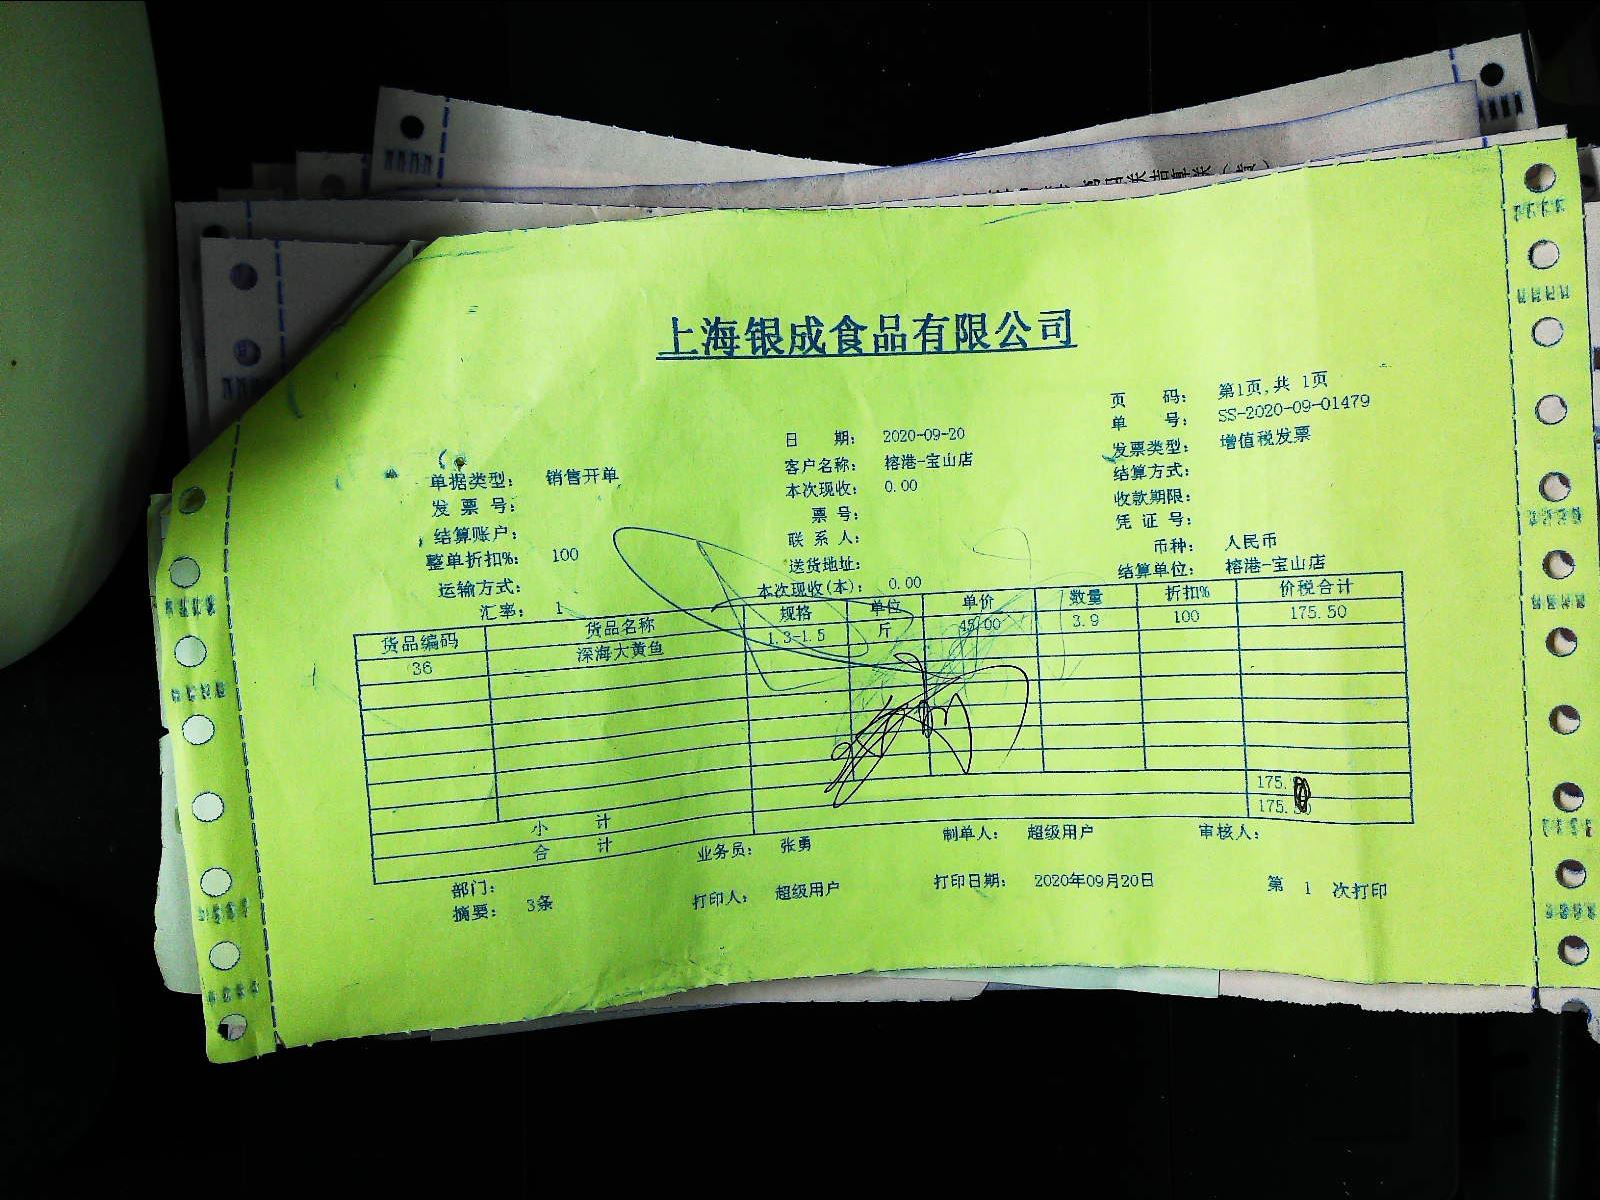 上海银成食品有限公司
页 码: 第1页,共 1页
单 号: SS-2020-09-01479
日 期: 2020-09-20
发票类型: 增值税发票
单据类型: 销售开单
客户名称: 榕港-宝山店
结算方式:
发 票 号:
本次现收: 0.00
收款期限:
结算账户:
票 号:
凭 证 号:
整单折扣%: 100
联 系 人:
币种: 人民币
运输方式:
送货地址:
结算单位: 榕港-宝山店
汇率: 1
本次现收(本): 0.00
货品编码 货品名称 规格 单位 单价 数量 折扣% 价税合计
36 深海大黄鱼 1.3-1.5 斤 45.00 3.9 100 175.50
小 计 175.
合 计 175.
部门: 业务员: 张勇 制单人: 超级用户 审核人:
摘要: 3条 打印人: 超级用户 打印日期: 2020年09月20日 第 1 次打印